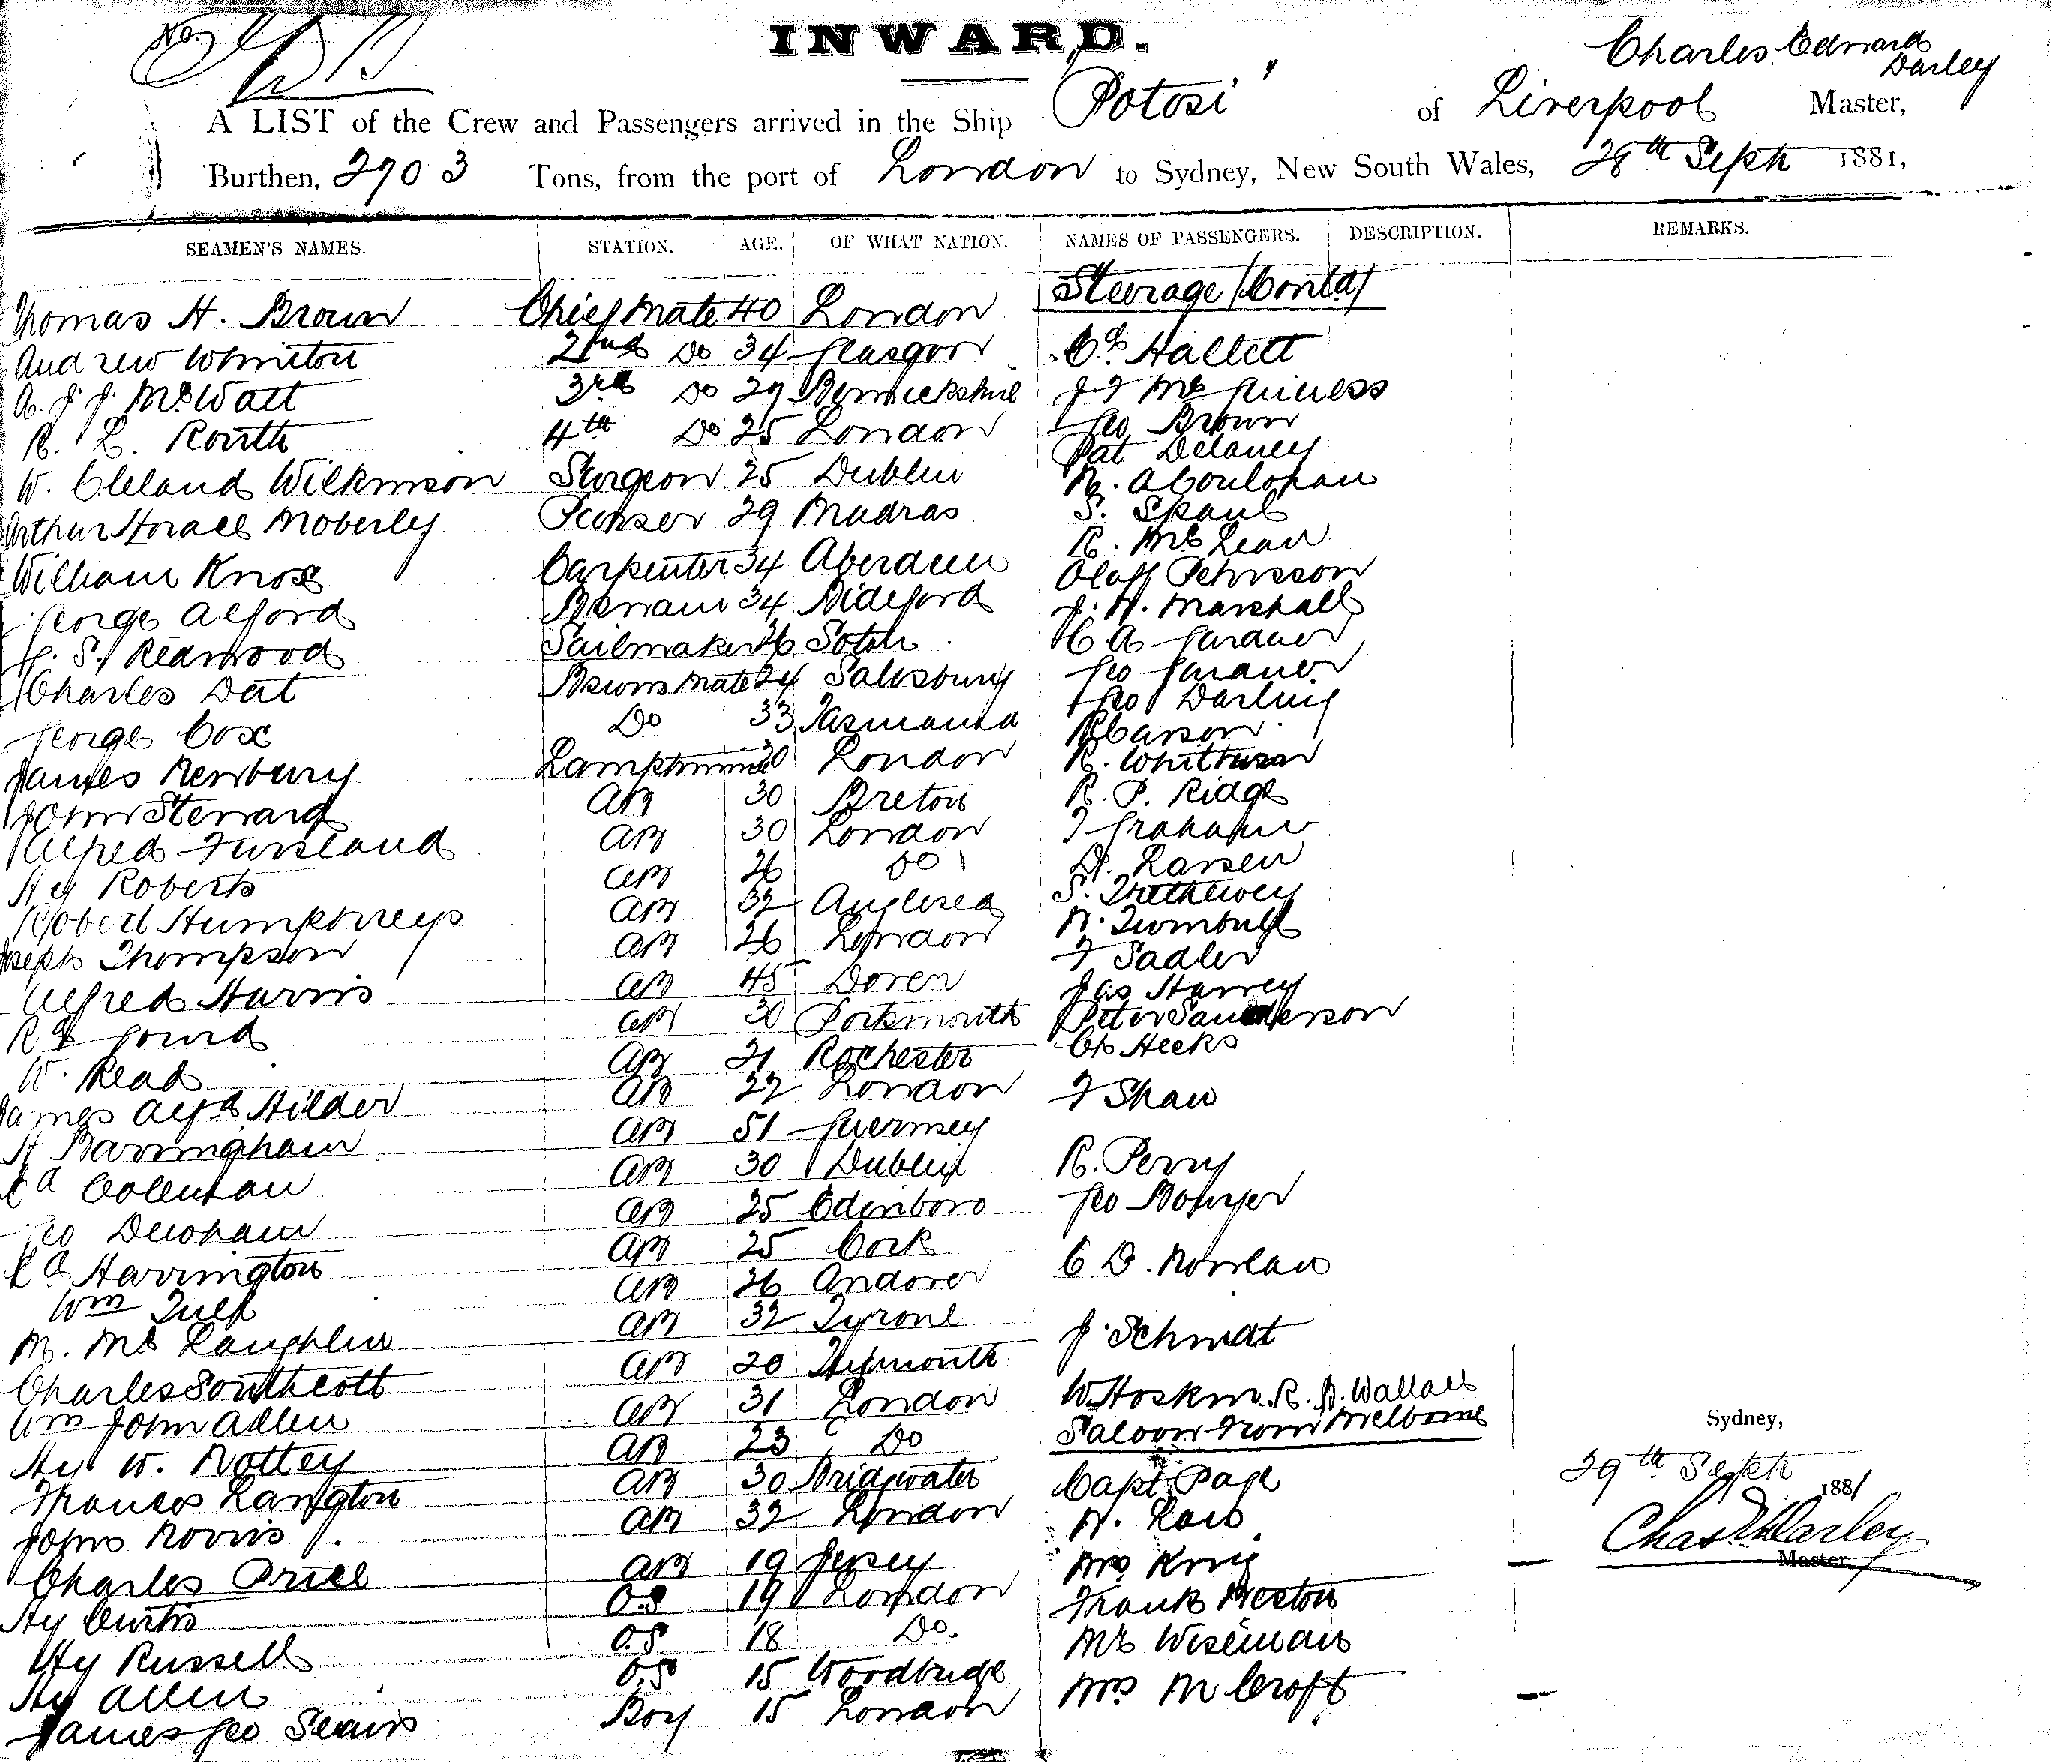 No.
INWARD.
Charles Edward Darley
A LIST of the Crew and Passengers arrived in the Ship "Potosi" of Liverpool Master,
Burthen, 2903 Tons, from the port of London to Sydney, New South Wales, 28th Sept 1881,
SEAMEN'S NAMES. STATION. AGE. OF WHAT NATION. NAMES OF PASSENGERS. DESCRIPTION. REMARKS.
Steerage (Contd)
Thomas H. Brown Chief Mate 40 London
Andrew 2nd Do 34 Glasgow Cs Hallett
A. J. J. McWatt 3rd Do 29 Berwickshire J F McGuiness
R. L. Routh 4th Do 25 London Geo Brown
Pat Delaney
W. Cleland Wilkinson Surgeon 25 Dublin
Arthur Horace Moberly Purser 29 Madras S.
William Knox Carpenter 34 Aberdeen R. McLean
George Alford Bosman 34 Bideford Olaff
J. H. Marshall
J. S. Redwood Sailmaker 26 Soton C A Gardner
Charles Dat Bosuns Mate 24 Salisbury Geo Gardner
George Cox Do 33 Tasmania Geo Darling
R Carson
James Newbury Lamptrimmer 30 London R.
John Steward AB 30 Breton R. P. Ridge
Alfred Fursland AB 30 London F Graham
Hy Roberts AB 26 Do Larsen
Robert Humphreys AB 32 Anglesea S. Trethewey
Joseph Thompson AB 26 London Turnbull
Alfred Harris AB 45 Dover F Sadler
Jas Harvey
Gourd AB 30 Portsmouth Peter Sanderson
W. Read AB 21 Rochester Cs Hecks
James Alfd Hilder AB 22 London F Shaw
H Barringham AB 51 Guernsey
Ed Coleman AB 30 Dublin R. Perry
Geo Denham AB 25 Edinboro Geo Bowyer
Ed Harrington AB 25 Cork
Wm Tulk AB 26 Andover C D. Rowlan
M. McLaughlin AB 32 Tyrone
Charles Southcott AB 20 J. Schmidt
Wm John Allen AB 31 London W Hoskin. R. Wallace
Hy W. Nottey AB 23 Do Saloon from Melbourne
Sydney,
Francis Langton AB 30 Bridgwater Capt. Page
29th Sept 1881
John Norris AB 32 London
Chas E Darley
Master
Charles Price AB 19 Jersey Mrs King
Hy Curtis O.S 19 London Frank Weston
Hy Russell O.S 18 Do. Mr Wiseman
Hy Allen O.S 15 Woodbridge Mrs M Croft
James Geo Boy 15 London